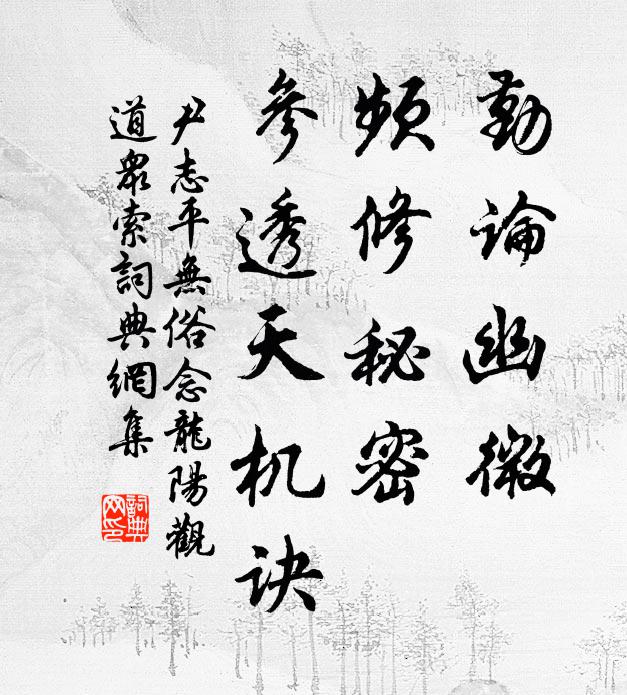 勤論幽微
頻修秘密
參透天机诀
尹志平無俗念龍陽觀
道眾索詞典網集
詞典網印